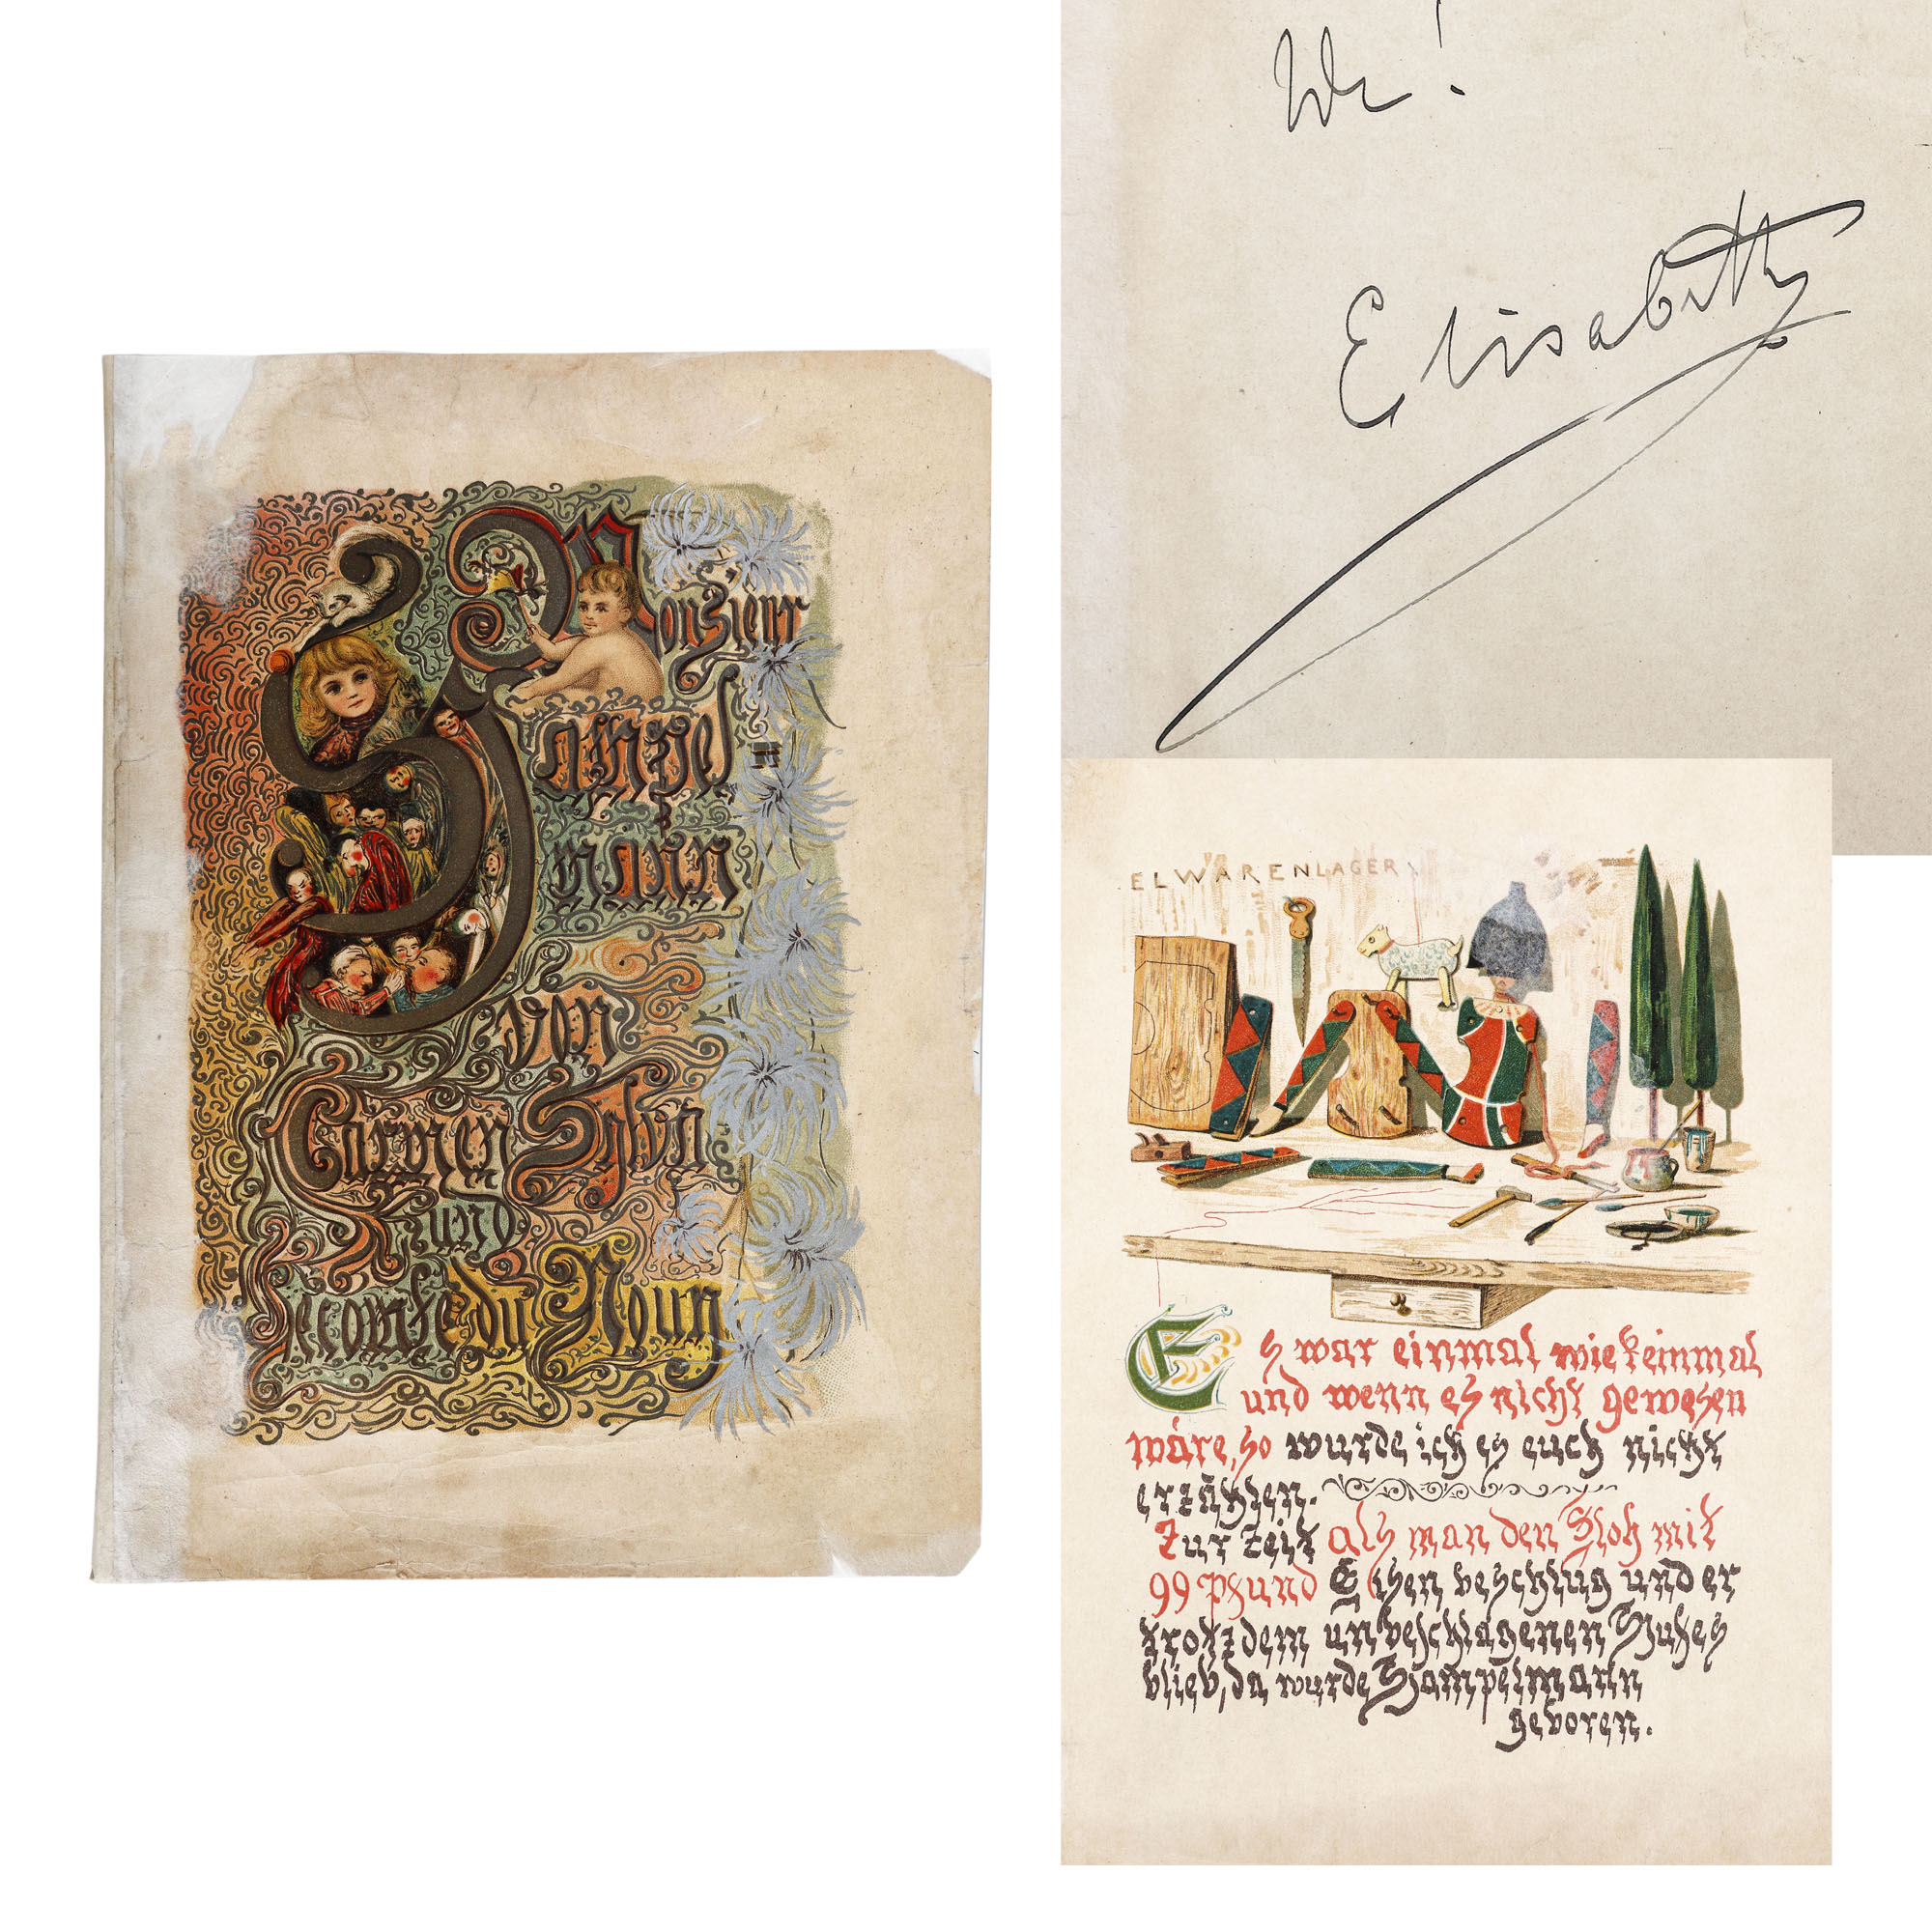 Monsieur
Hampel
mann
von
Carmen Sylva
und
Lecomte du Nouy
Elisabeth
ELWARENLAGER
Es war einmal wie keinmal
und wenn es nicht gewesen
wäre, so würde ich es euch nicht
erzählen.
Zur Zeit als man den Floh mit
99 Pfund Eisen beschlug und er
trotzdem unbeschlagenen Fußes
blieb, da wurde Hampelmann
geboren.